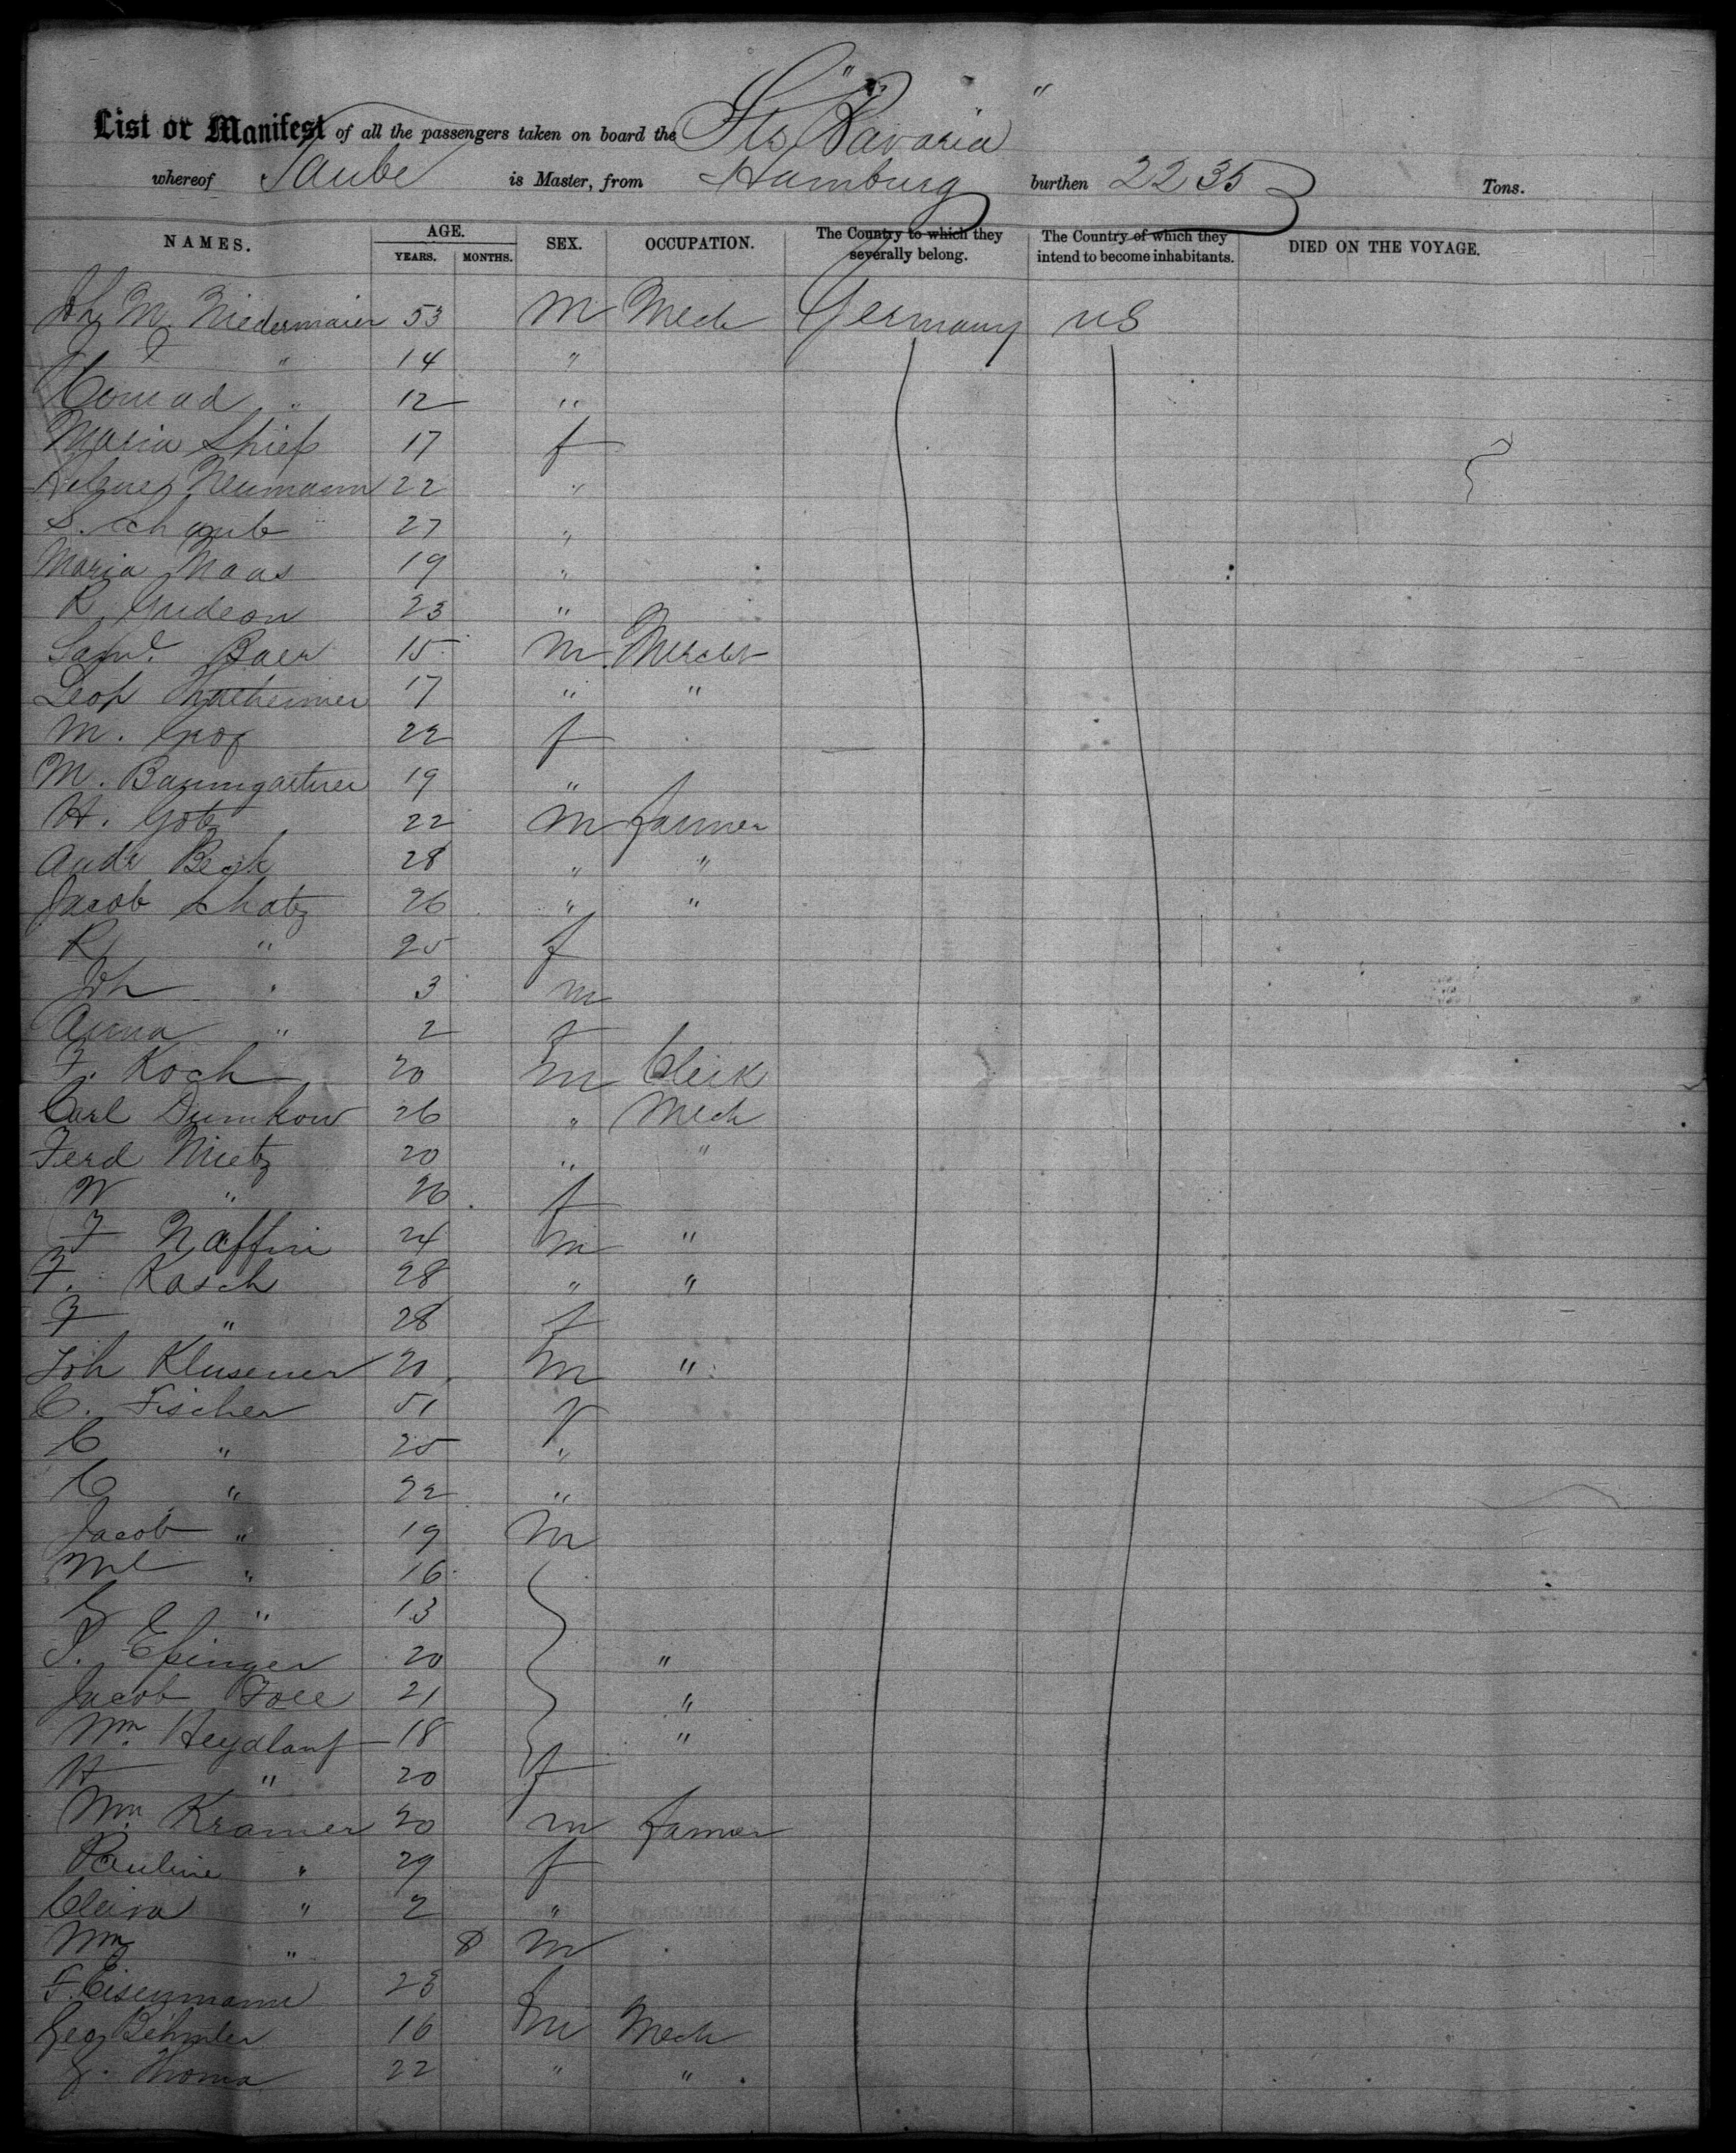 List or Manifest of all the passengers taken on board the Sts "Bavaria"
whereof Taube is Master, from Hamburg burthen 2235 Tons.
NAMES. AGE. YEARS. MONTHS. SEX. OCCUPATION. The Country to which they severally belong. The Country of which they intend to become inhabitants. DIED ON THE VOYAGE.
Joh M. Niedermaier 53 M Mech Germany US
" 14 "
Conrad " 12 "
Maria 17 f
Neumann 22 "
S. Schaub 27 "
Maria Maas 19 "
R. Gudeon 23 "
Saml. Baer 15 M Mercht
Leop 17 " "
M. Grof 22 f
M. Baumgartner 19 "
H. Gotz 22 M farmer
Andr Beck 28 " "
Jacob Schatz 26 " "
R " 25 f
Joh " 3 m
Anna " 2 f
F. Koch 20 m Clerk
Carl Dumkow 26 " Mech
Ferd Mietz 20 " "
W " 26 f
F Naffin 24 m "
F. Kasch 28 " "
F " 28 f
Joh Klusener 20 m "
C. Fischer 51 f
C " 25 "
C " 22 "
Jacob " 19 M
" 16
" 13
Epinger 20 "
Jacob 21 "
Wm. Heydlauf 18 "
H " 20 f
Wm. Kramer 20 m farmer
Pauline " 29 f
Clara " 2 "
Wm " 8 m
F. Eisenmann 23
Geo Behmler 16 m Mech
G. Thoma 22 " "